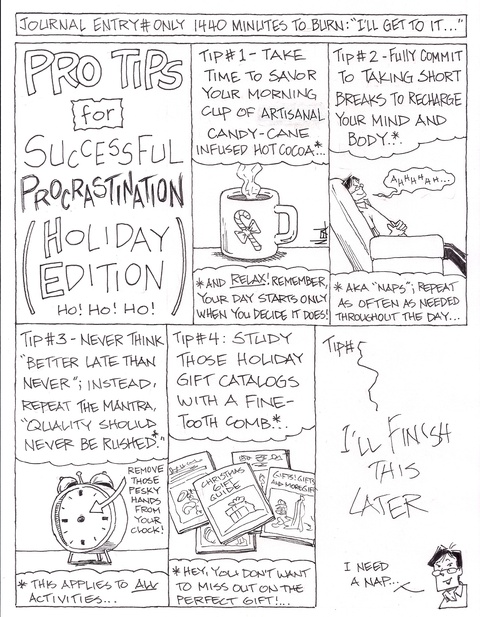 JOURNAL ENTRY# ONLY 1440 MINUTES TO BURN: "I'LL GET TO IT..."
PRO TIPS
for
SUCCESSFUL
PROCRASTINATION
(HOLIDAY
EDITION)
HO! HO! HO!
TIP#1 - TAKE
TIME TO SAVOR
YOUR MORNING
CUP OF ARTISANAL
CANDY-CANE
INFUSED HOT COCOA*...
*AND RELAX! REMEMBER,
YOUR DAY STARTS ONLY
WHEN YOU DECIDE IT DOES!
TIP#2 - FULLY COMMIT
TO TAKING SHORT
BREAKS TO RECHARGE
YOUR MIND AND
BODY.*.
AHHHHAH...
*AKA "NAPS"; REPEAT
AS OFTEN AS NEEDED
THROUGHOUT THE DAY...
TIP#3 - NEVER THINK
"BETTER LATE THAN
NEVER"; INSTEAD,
REPEAT THE MANTRA,
"QUALITY SHOULD
NEVER BE RUSHED*."
REMOVE
THOSE
PESKY
HANDS
FROM
YOUR
CLOCK!
*THIS APPLIES TO ALL
ACTIVITIES...
TIP#4: STUDY
THOSE HOLIDAY
GIFT CATALOGS
WITH A FINE-
TOOTH COMB*.
CHRISTMAS
GIFT
GUIDE
GIFTS! GIFTS
AND MORE GIFTS
*HEY, YOU DON'T WANT
TO MISS OUT ON THE
PERFECT GIFT!...
TIP#5
I'LL FINISH
THIS
LATER
I NEED
A NAP...